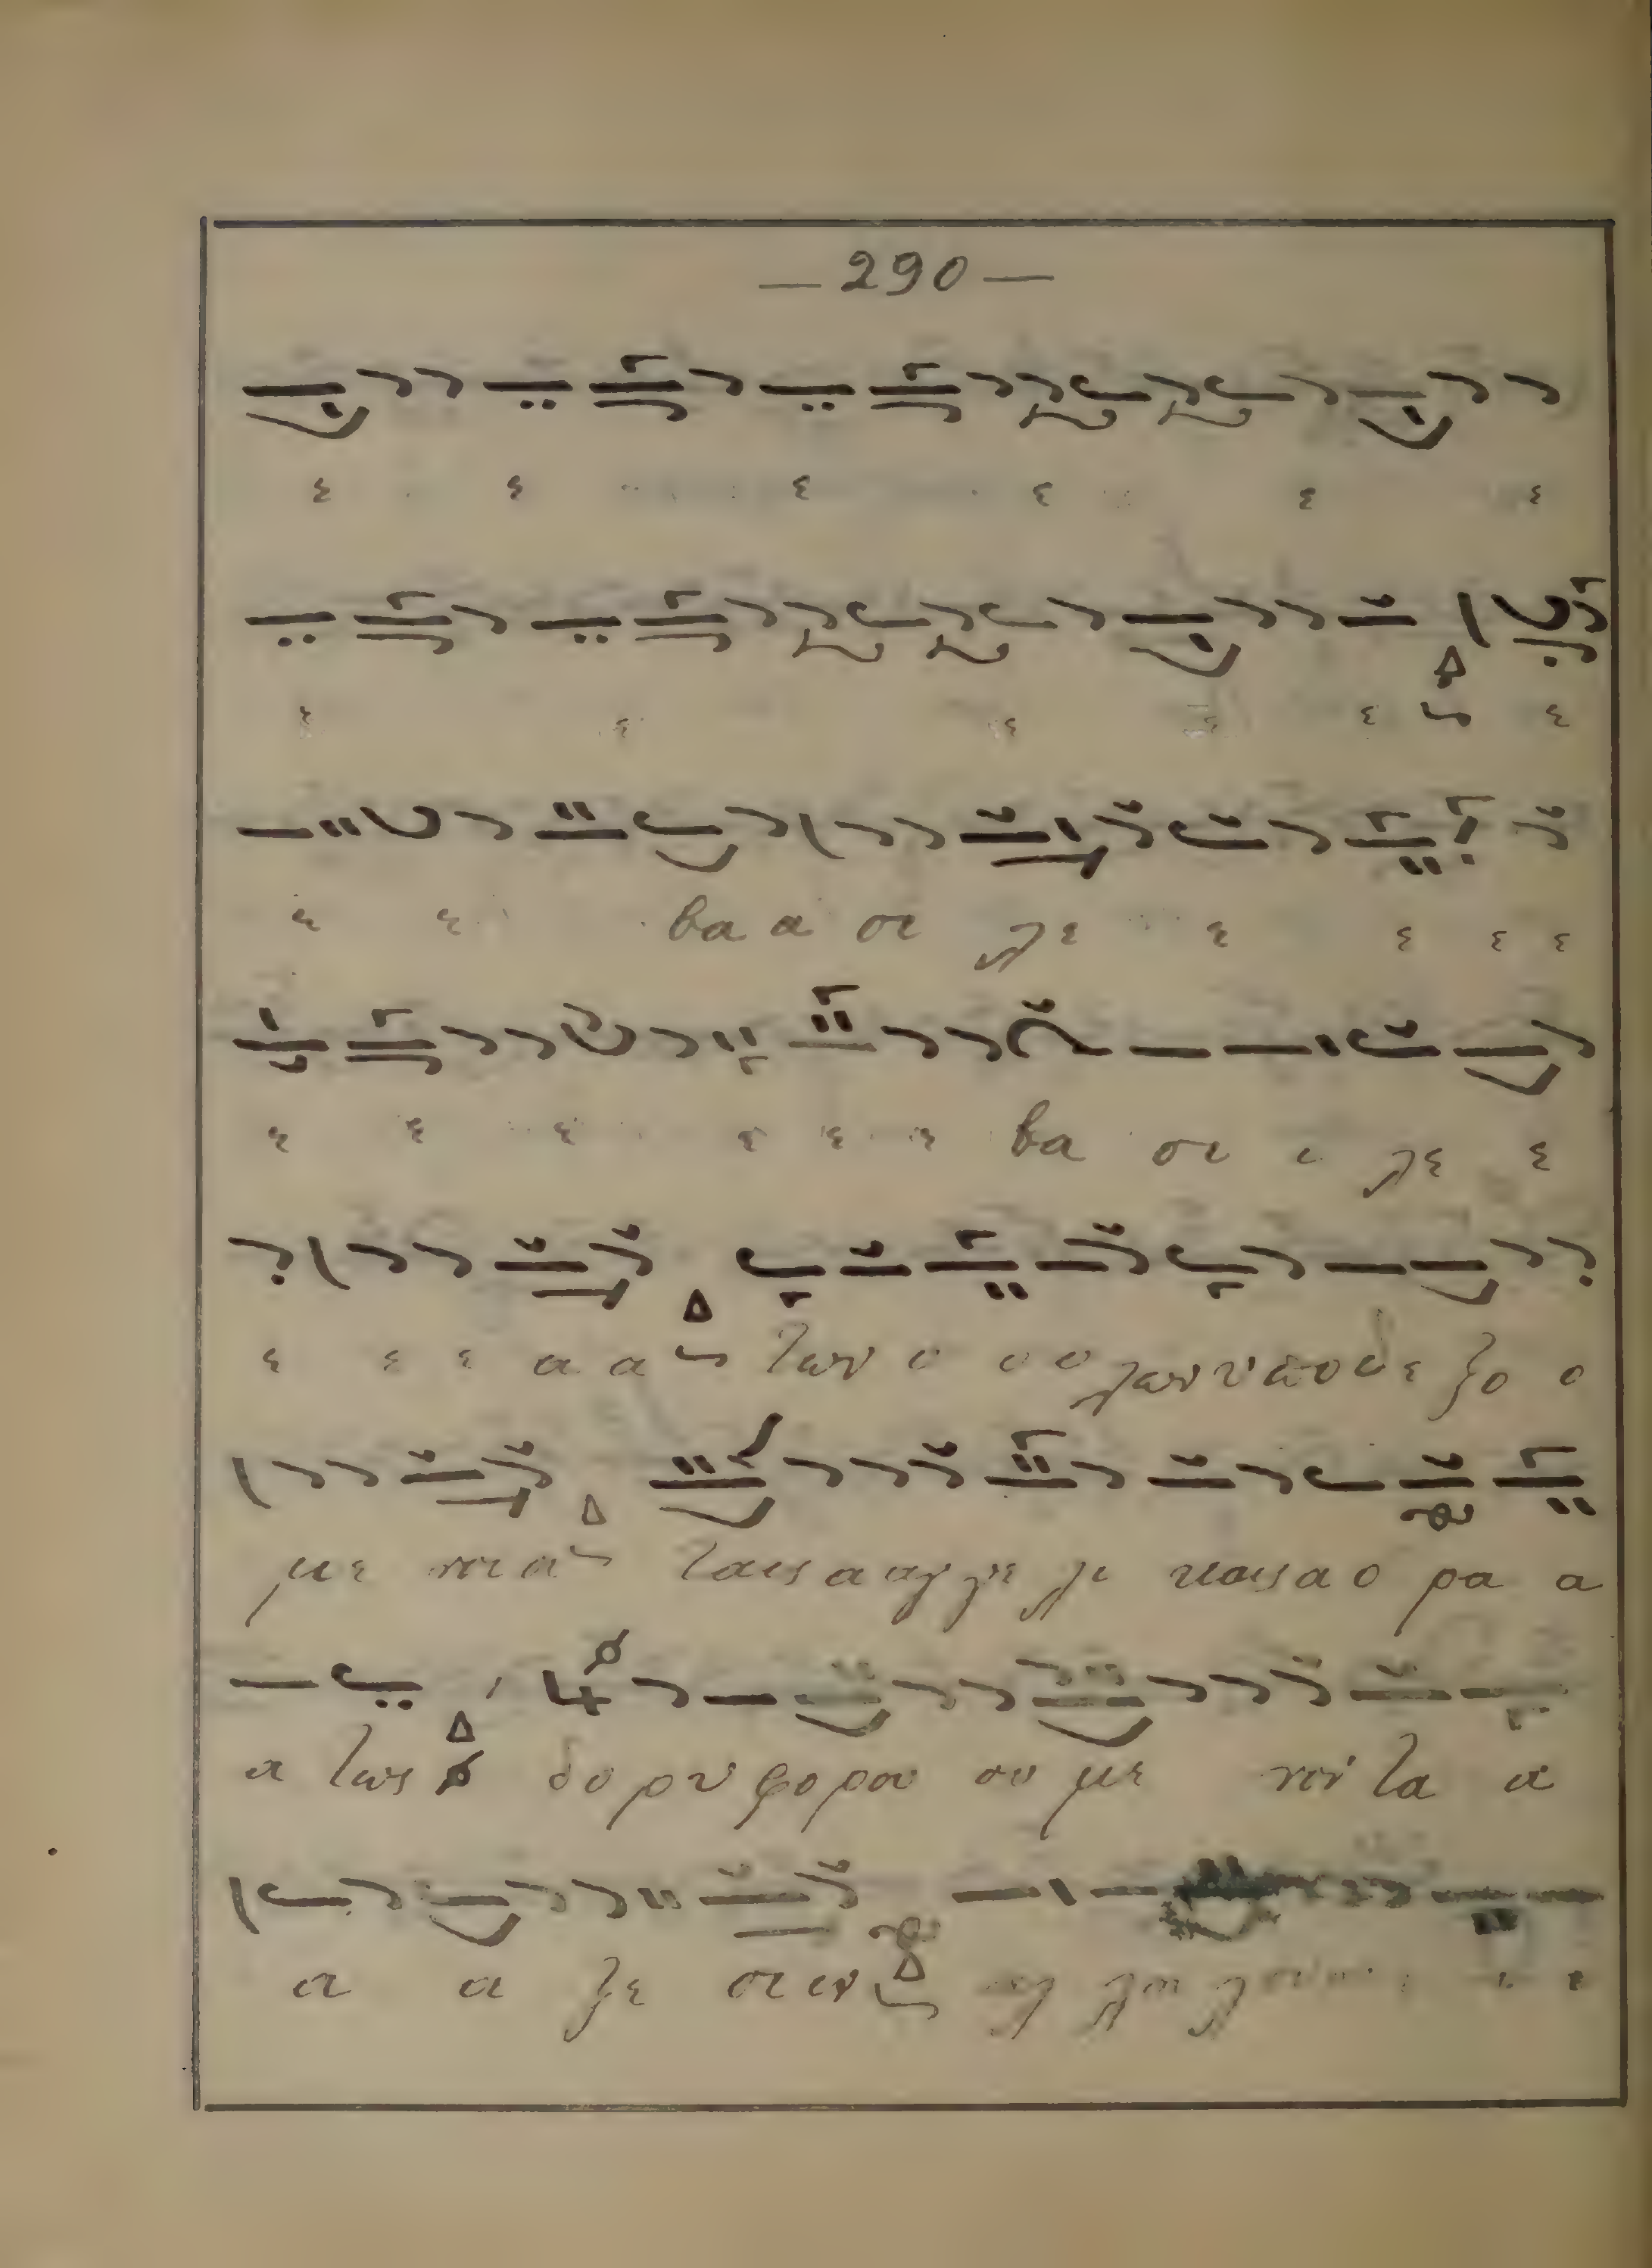 — 290 —
ε ε ε ε ε ε
ε ε ε ε ε ε
ε ε βα α σι λε ε ε ε ε
ε ε ε ε ε ε βα σι ι λε ε
ε ε ε α α των ο ο ο λων υποδε ξο ο
με νοι α ταις α αγ γε λι καις α ο ρα α
α τως δο ρυ φο ρου ου με νον τα α
α α ξε σιν αλ λη λου